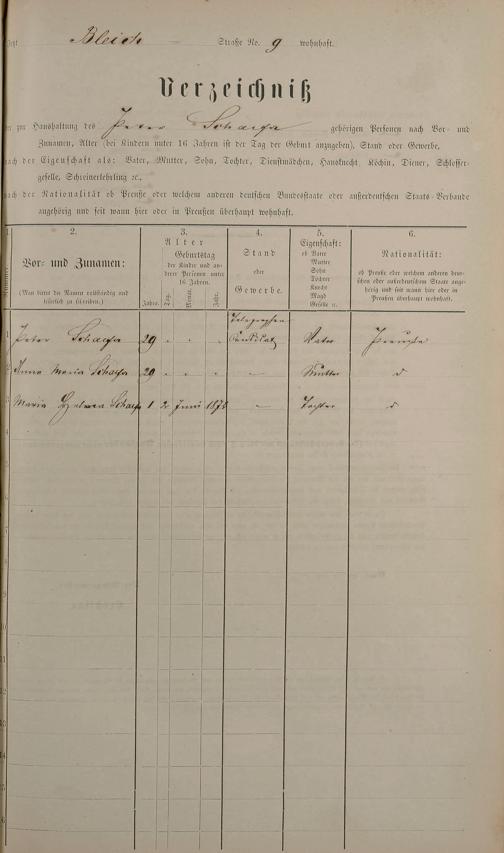 Jetzt Bleich Straße No. 9 wohnhaft.
Verzeichniß
der zur Haushaltung des Peter Schaefer gehörigen Personen nach Vor- und
Zunamen, Alter (bei Kindern unter 16 Jahren ist der Tag der Geburt anzugeben), Stand oder Gewerbe,
nach der Eigenschaft als: Vater, Mutter, Sohn, Tochter, Dienstmädchen, Hausknecht, Köchin, Diener, Schlosser-
geselle, Schreinerlehrling ꝛc.,
nach der Nationalität ob Preuße oder welchem anderen deutschen Bundesstaate oder außerdeutschen Staats-Verbande
angehörig und seit wann hier oder in Preußen überhaupt wohnhaft.
1.
Nummer
2.
Vor- und Zunamen:
(Man bittet die Namen vollständig und
leserlich zu schreiben.)
3.
Alter
Geburtstag
der Kinder und an-
derer Personen unter
16 Jahren.
Jahre. Tag. Monat. Jahr.
4.
Stand
oder
Gewerbe.
5.
Eigenschaft:
ob Vater
Mutter
Sohn
Tochter
Knecht
Magd
Geselle ꝛc.
6.
Nationalität:
ob Preuße oder welchem anderen deut-
schen oder außerdeutschen Staate ange-
hörig und seit wann hier oder in
Preußen überhaupt wohnhaft.
Telegraphen
1 Peter Schaefer 29 " " " Candidat Vater Preuße
2 Anna Maria Schaefer 29 " " " — Mutter d
3 Maria Schaefer 1 2 Juni 187 — Tochter d
4
5
6
7
8
9
10
11
12
13
14
15
16